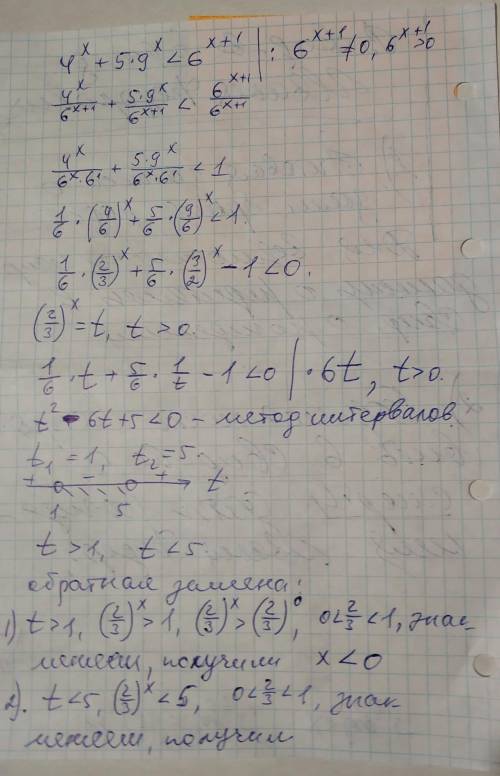 4^x + 5·9^x < 6^{x+1} | : 6^{x+1} ≠0, 6^{x+1} >0
4^x/6^{x+1} + 5·9^x/6^{x+1} < 6^{x+1}/6^{x+1}
4^x/6^x·6^1 + 5·9^x/6^x·6^1 < 1
1/6 · (4/6)^x + 5/6 · (9/6)^x < 1.
1/6 · (2/3)^x + 5/6 · (3/2)^x - 1 < 0.
(2/3)^x = t, t > 0.
1/6 · t + 5/6 · 1/t - 1 < 0 | · 6t, t>0.
t^2 - 6t + 5 < 0. - метод интервалов
t_1 = 1, t_2 = 5.
+ - + t
1 5
t > 1, t < 5.
обратная замена:
1) t > 1, (2/3)^x > 1, (2/3)^x > (2/3)^0, 0 < 2/3 < 1, знак
меняем, получили x < 0
2). t < 5, (2/3)^x < 5, 0 < 2/3 < 1, знак
меняем, получим